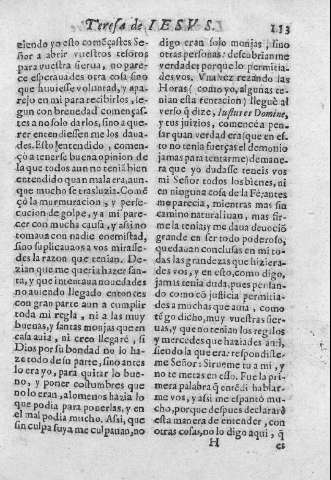 Teresa de IESVS. 113
ziendo yo esto començastes Se-
ñor a abrir vuestros tesoros
para vuestra sierua, no pare-
ce esperauades otra cosa sino
que huuiesse voluntad, y apa-
rejo en mi para recibirlos, se-
gun con breuedad começaſ-
tes a no solo darlos, sino a que-
rer entendiessen me los daua-
des. Esto entendido, comen-
çò a tenerse buena opinion de
la que todos aun no tenia bien
entendido quan mala era, aun-
que mucho se trasluzia. Come
çò la murmuracion, y perse-
cucion de golpe, y a mi pare-
cer con mucha causa, y assi no
tomaua con nadie enemistad,
sino suplicauaos a vos mirasse-
des la razon que tenian. De-
zian que me queria hazer san-
ta, y que inuentaua nouedades
no auiendo llegado entonces
con gran parte aun a cumplir
toda mi regla, ni a las muy
buenas, y santas monjas que en
casa auia, ni creo llegarè, si
Dios por su bondad no lo ha-
ze todo de su parte, sino antes
lo era yo, para quitar lo bue-
no, y poner costumbres que
no lo eran, alomenos hazia lo
que podia para ponerlas, y en
el mal podia mucho. Assi, que
sin culpa suya me culpauan, no
digo eran solo monjas, sino
otras personas: descubrianme
verdades, porque lo permitia-
des vos. Vna vez rezando las
Horas (como yo, algunas te-
nian esta tentacion) lleguè al
verso q̃ dize, Iustus es Domine,
y tus juizios, començè a pen-
sar quan verdad era (que en es-
to no tenia fuerças el demonio
jamas para tentarme) de mane-
ra que yo dudasse teneis vos
mi Señor todos los bienes, ni
en ninguna cosa de la Fè, antes
me parecia, mientras mas sin
camino natural iuan, mas fir-
me la tenia, y me daua deuociõ
grande en ser todo poderoso,
quedauan conclusas en mi to-
das las grandezas que hiziera-
des vos, y en esto, como digo,
jamas tenia duda, pues pensan-
do como cõ justicia permitia-
des a muchas que auia, como
tẽgo dicho, muy vuestras sier-
uas, y que no tenian los regalos
y mercedes que haziades a mi,
siendo la que era: respondiste-
me Señor: Sirueme tu a mi, y
no te metas en esso. Fue la pri-
mera palabra q̃ entẽdi hablar-
me vos, y assi me espantò mu-
cho, porque despues declararè
esta manera de entender, con
otras cosas, no lo digo aqui, q̃
H es